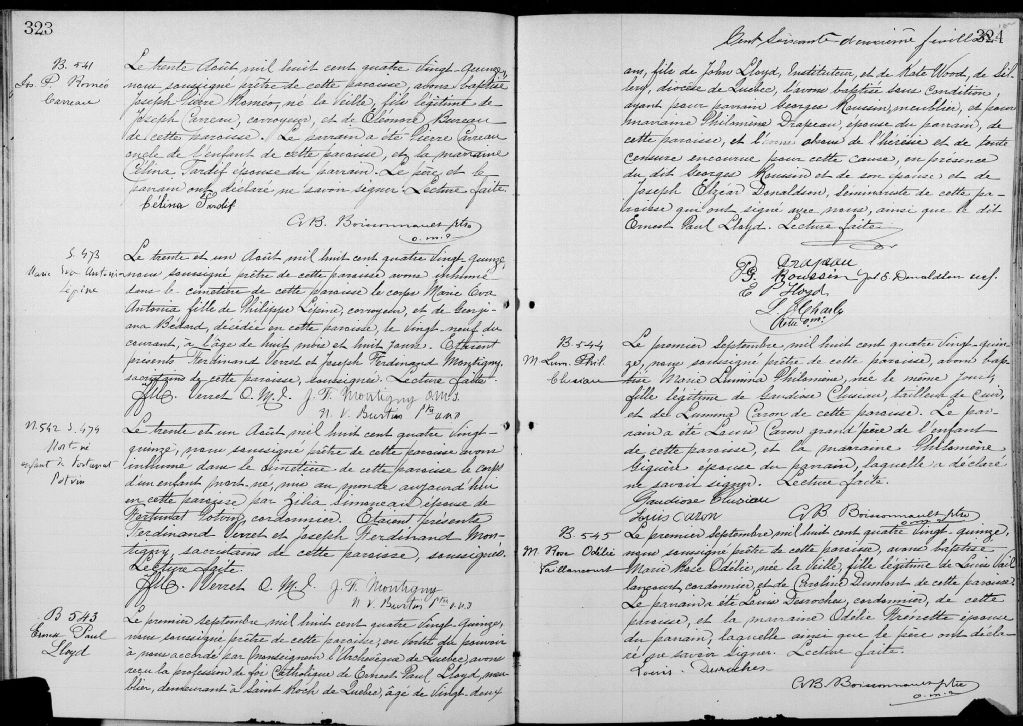 323
B. 541
Jos. P. Roméo
Carreau
Le trente Août mil huit cent quatre vingt-quinze,
nous soussigné prêtre de cette paroisse, avons baptisé
Joseph Pierre Roméo, né la veille, fils légitime de
Joseph Carreau, corroyeur, et de Eléonore Bureau
de cette paroisse. Le parrain a été Pierre Carreau
oncle de l'enfant de cette paroisse, et la marraine
Célina Tardif épouse du parrain. Le père et le
parrain ont déclaré ne savoir signer. Lecture faite.
Célina Tardif
G. B. Boissonnault ptre
o.m.i
S. 473
Marie Eva Antonia
Lépine
Le trente et un Août, mil huit cent quatre vingt-quinze
nous soussigné prêtre de cette paroisse avons inhumé
dans le cimetière de cette paroisse le corps Marie Eva
Antonia fille de Philippe Lépine, corroyeur, et de Georgi-
ana Bédard, décédée en cette paroisse, le vingt-neuf du
courant, à l'âge de huit mois et huit jours. Etaient
présents Ferdinand Verret et Joseph Ferdinand Montigny,
sacristains de cette paroisse, soussignés. Lecture faite.
Verret O. M. I. J. F. Montigny O.M.I.
N. V. Burtin ptre o.m.i
N. 542 S. 474
Mort-né
enfant de Fortunat
Potvin
Le trente et un Août, mil huit cent quatre vingt-
quinze, nous soussigné prêtre de cette paroisse avons
inhumé dans le cimetière de cette paroisse le corps
d'un enfant mort-né, mis au monde aujourd'hui
en cette paroisse par Zélia Simoneau épouse de
Fortunat Potvin, cordonnier. Etaient présents
Ferdinand Verret et Joseph Ferdinand Mon-
tigny, sacristains de cette paroisse, soussignés.
Lecture faite.
Verret O. M. I. J. F. Montigny
N. V. Burtin ptre o.m.i
B 543
Ernest Paul
Lloyd
Le premier septembre mil huit cent quatre vingt-quinze,
nous soussigné prêtre de cette paroisse, en vertu du pouvoir
à nous accordé par Monseigneur l'Archevêque de Québec, avons
reçu la profession de foi Catholique de Ernest Paul Lloyd, meu-
blier, demeurant à Saint Roch de Québec, âgé de vingt-deux
Cent soixante-deuxième feuillet
324
ans, fils de John Lloyd, Instituteur, et de Kate Wood, de Sil-
lery, diocèse de Québec, l'avons baptisé sous condition,
ayant pour parrain Georges Roussin, meublier, et pour
marraine Philomène Drapeau, épouse du parrain, de
cette paroisse, et l'avons absous de l'hérésie et de toute
censure encourue pour cette cause, en présence
du dit Georges Roussin et de son épouse et de
Joseph Elzéar Donaldson, séminariste de cette pa-
roisse qui ont signé avec nous, ainsi que le dit
Ernest Paul Lloyd. Lecture faite.
P. Drapeau
G. Roussin Jos E Donaldson
E P Lloyd
B 544
M. Lum. Phil.
Clusiau
Le premier Septembre, mil huit cent quatre vingt-quin-
ze, nous soussigné prêtre de cette paroisse, avons bap-
tisé Marie Lumina Philomène, née le même jour,
fille légitime de Gaudiose Clusiau, tailleur de cuir,
et de Lumina Caron de cette paroisse. Le par-
rain a été Louis Caron grand père de l'enfant
de cette paroisse, et la marraine Philomène
Giguère épouse du parrain, laquelle a déclaré
ne savoir signer. Lecture faite.
Gaudiose Clusiau
Louis Caron G. B. Boissonnault ptre
o.m.i
B. 545
M. Rose Odélie
Vaillancourt
Le premier Septembre mil huit cent quatre vingt-quinze,
nous soussigné prêtre de cette paroisse, avons baptisé
Marie Rose Odélie, née la veille, fille légitime de Louis Vail-
lancourt cordonnier, et de Caroline Dumont de cette paroisse.
Le parrain a été Louis Desroches, cordonnier, de cette
paroisse, et la marraine Odélie Frénette épouse
du parrain, laquelle ainsi que le père ont décla-
ré ne savoir signer. Lecture faite.
Louis Desroches
G. B. Boissonnault ptre
o.m.i